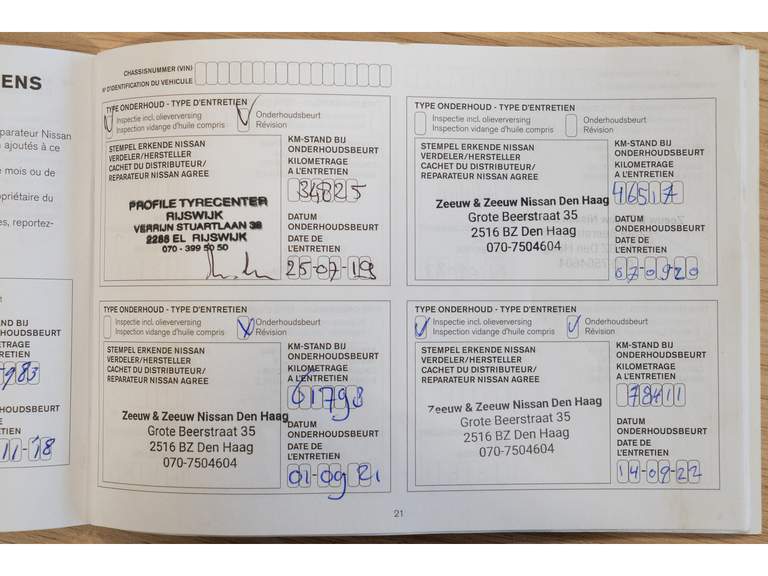 ENS
parateur Nissan
n ajoutés à ce
e mois ou de
opriétaire du
es, reportez-
nhoudsbeurt
ision
AND BIJ
RHOUDSBEURT
ETRAGE
RETIEN
983
M
HOUDSBEURT
E
TIEN
11-18
CHASSISNUMMER (VIN)
N° D'IDENTIFICATION DU VEHICULE
TYPE ONDERHOUD - TYPE D'ENTRETIEN
Inspectie incl. olieverversing
Inspection vidange d'huile compris
Onderhoudsbeurt
Révision
STEMPEL ERKENDE NISSAN
VERDELER/HERSTELLER
CACHET DU DISTRIBUTEUR/
REPARATEUR NISSAN AGREE
PROFILE TYRECENTER
RIJSWIJK
VERRIJN STUARTLAAN 38
2288 EL RIJSWIJK
070 - 399 50 50
KM-STAND BIJ
ONDERHOUDSBEURT
KILOMETRAGE
A L'ENTRETIEN
34825
DATUM
ONDERHOUDSBEURT
DATE DE
L'ENTRETIEN
25-07-19
TYPE ONDERHOUD - TYPE D'ENTRETIEN
Inspectie incl. olieverversing
Inspection vidange d'huile compris
Onderhoudsbeurt
Révision
STEMPEL ERKENDE NISSAN
VERDELER/HERSTELLER
CACHET DU DISTRIBUTEUR/
REPARATEUR NISSAN AGREE
Zeeuw & Zeeuw Nissan Den Haag
Grote Beerstraat 35
2516 BZ Den Haag
070-7504604
KM-STAND BIJ
ONDERHOUDSBEURT
KILOMETRAGE
A L'ENTRETIEN
46517
DATUM
ONDERHOUDSBEURT
DATE DE
L'ENTRETIEN
070920
TYPE ONDERHOUD - TYPE D'ENTRETIEN
Inspectie incl. olieverversing
Inspection vidange d'huile compris
Onderhoudsbeurt
Révision
STEMPEL ERKENDE NISSAN
VERDELER/HERSTELLER
CACHET DU DISTRIBUTEUR/
REPARATEUR NISSAN AGREE
Zeeuw & Zeeuw Nissan Den Haag
Grote Beerstraat 35
2516 BZ Den Haag
070-7504604
KM-STAND BIJ
ONDERHOUDSBEURT
KILOMETRAGE
A L'ENTRETIEN
61798
DATUM
ONDERHOUDSBEURT
DATE DE
L'ENTRETIEN
01-09 21
TYPE ONDERHOUD - TYPE D'ENTRETIEN
Inspectie incl. olieverversing
Inspection vidange d'huile compris
Onderhoudsbeurt
Révision
STEMPEL ERKENDE NISSAN
VERDELER/HERSTELLER
CACHET DU DISTRIBUTEUR/
REPARATEUR NISSAN AGREE
Zeeuw & Zeeuw Nissan Den Haag
Grote Beerstraat 35
2516 BZ Den Haag
070-7504604
KM-STAND BIJ
ONDERHOUDSBEURT
KILOMETRAGE
A L'ENTRETIEN
78411
DATUM
ONDERHOUDSBEURT
DATE DE
L'ENTRETIEN
14-09-22
21